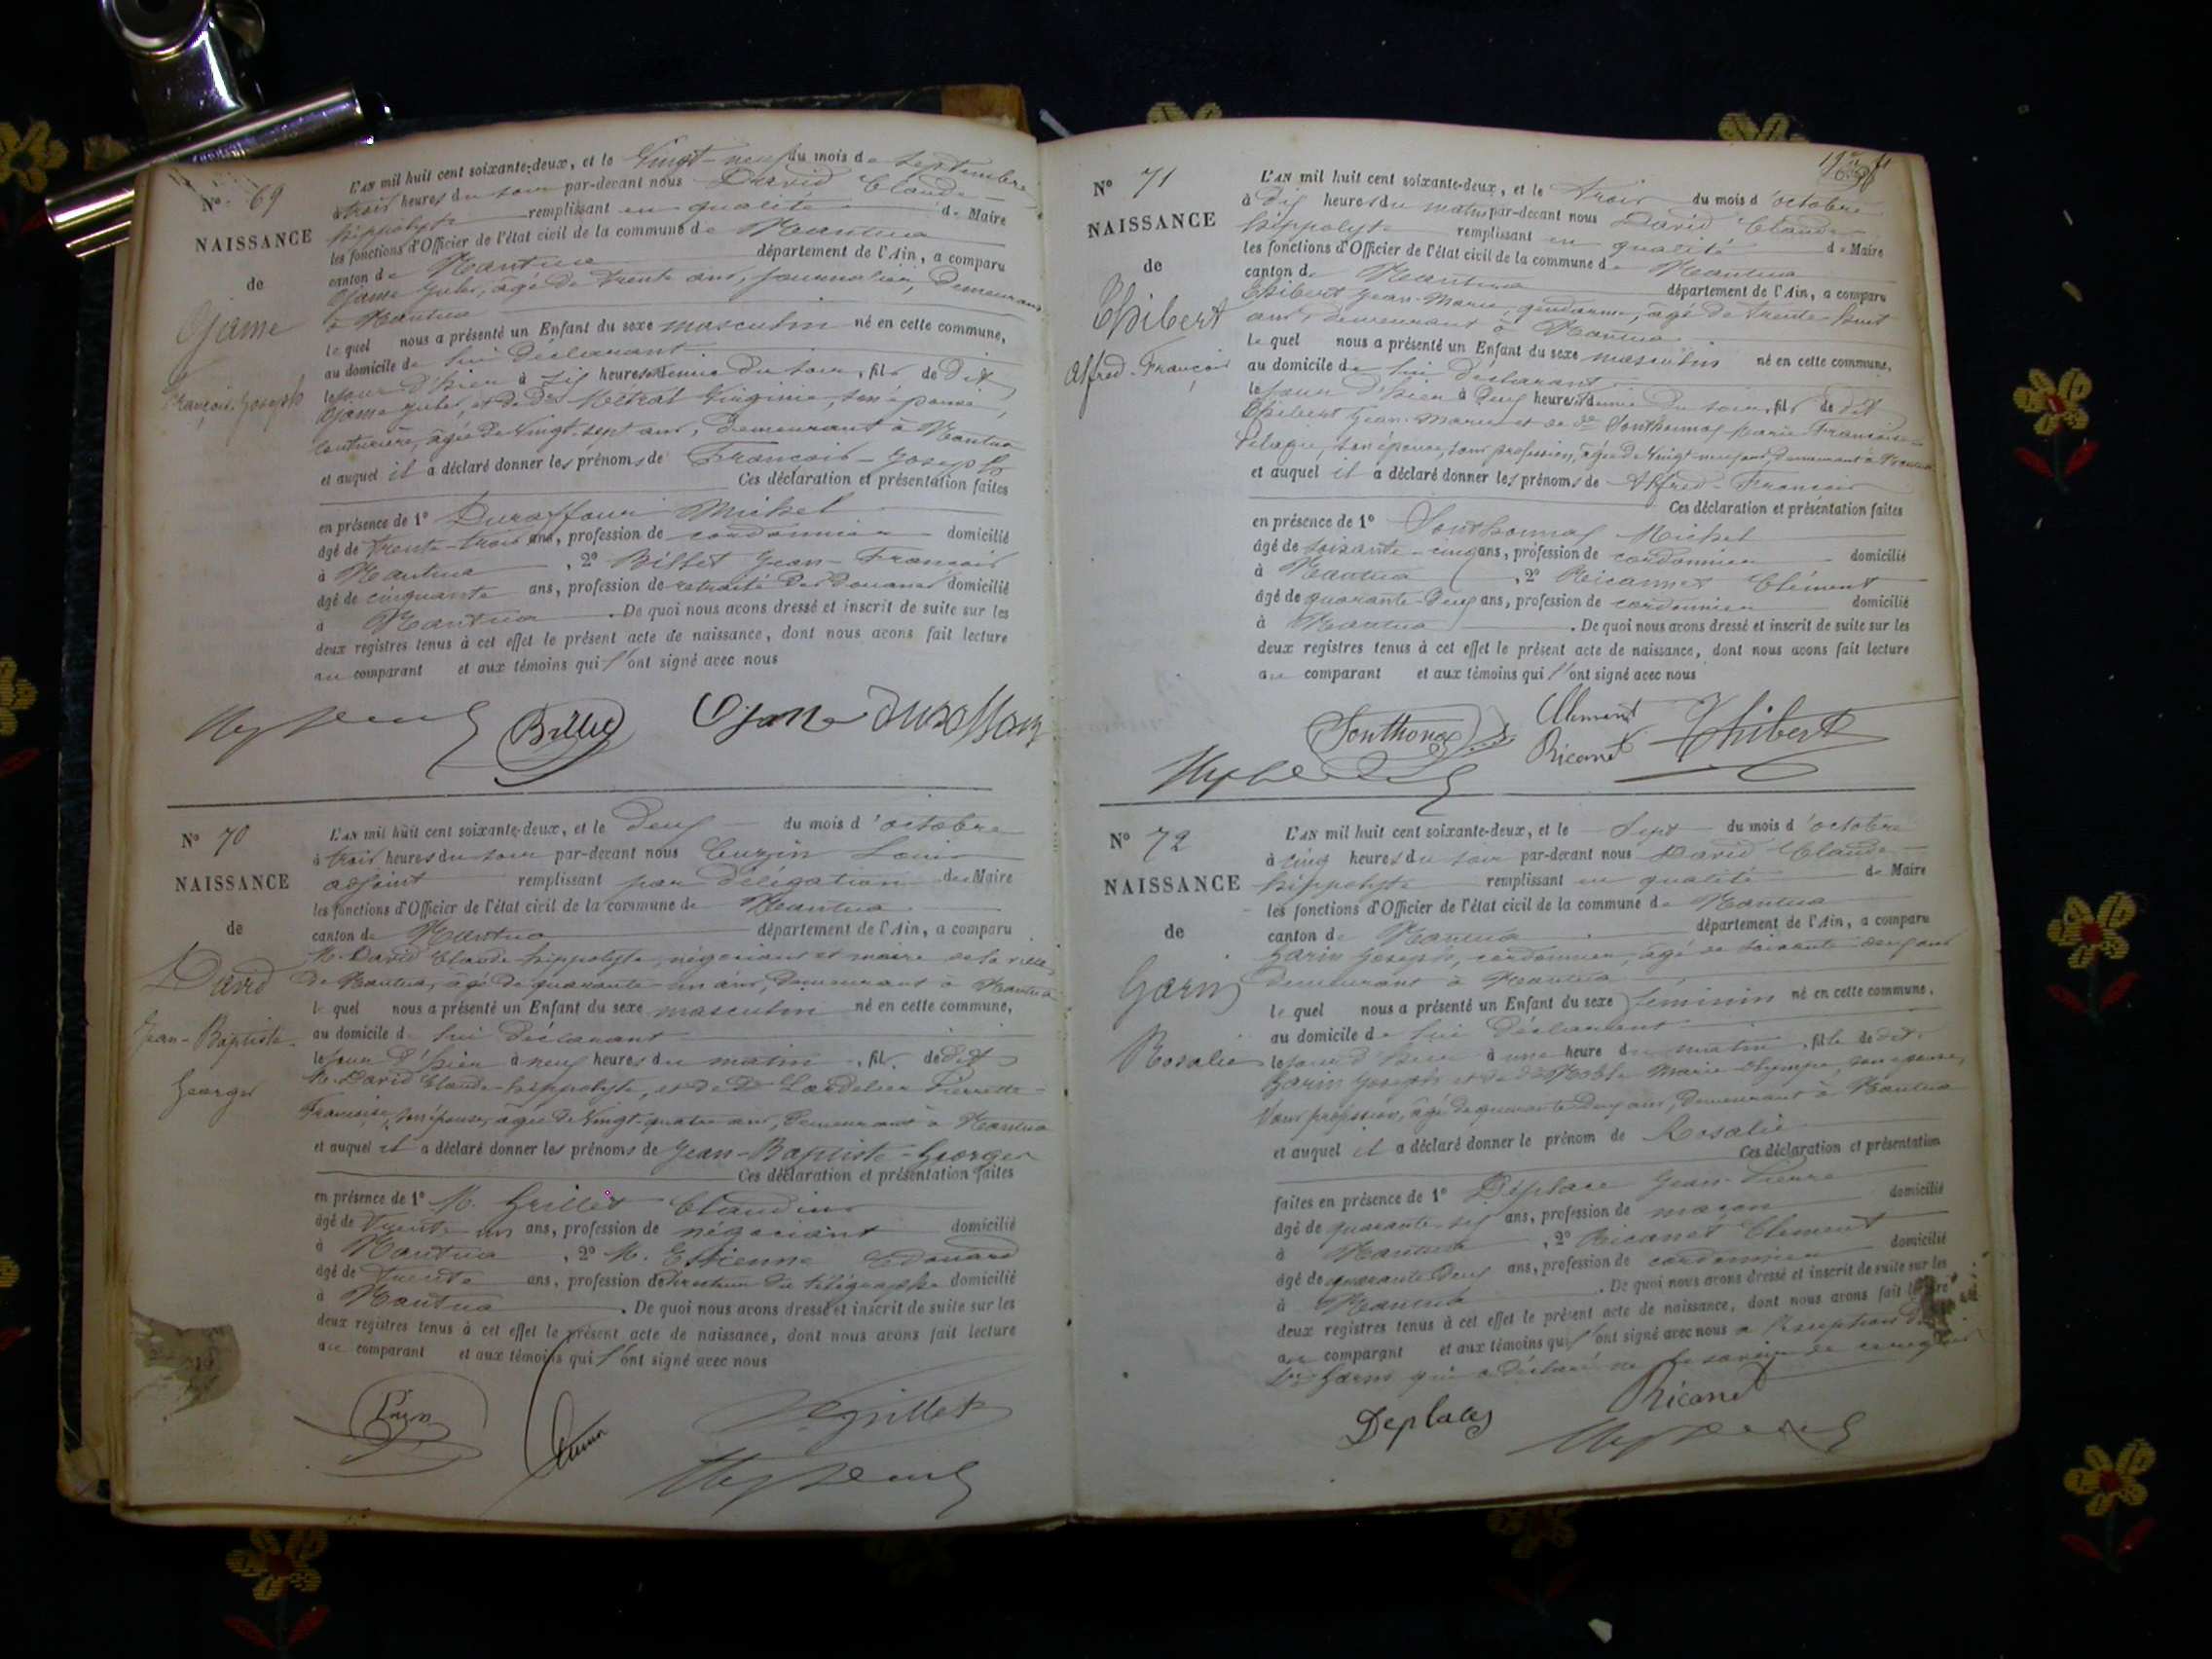 N° 69
NAISSANCE
de
Ojame
François-Joseph
L'AN mil huit cent soixante-deux, et le Vingt-neuf du mois de Septembre
à trois heures du soir par-devant nous David Claude-
hippolyte remplissant en qualité de Maire
les fonctions d'Officier de l'état civil de la commune de Nantua
canton de Nantua département de l'Ain, a comparu
Ojame Jules, âgé de trente ans, journalier, demeurant
à Nantua
le quel nous a présenté un Enfant du sexe masculin né en cette commune,
au domicile de lui déclarant
le jour d'hier à six heures et demie du soir, fils de dit
Ojame Jules, et de de Métral Virginie, son épouse,
couturière, âgée de vingt-sept ans, demeurant à Nantua
et auquel il a déclaré donner les prénoms de François-Joseph
Ces déclaration et présentation faites
en présence de 1° Duraffour Michel
âgé de trente-trois ans, profession de cordonnier domicilié
à Nantua, 2° Billet Jean-François
âgé de cinquante ans, profession de retraité des douanes domicilié
à Nantua. De quoi nous avons dressé et inscrit de suite sur les
deux registres tenus à cet effet le présent acte de naissance, dont nous avons fait lecture
au comparant et aux témoins qui l'ont signé avec nous
Billet Ojame Duraffour
N° 70
NAISSANCE
de
David
Jean-Baptiste-
Georges
L'AN mil huit cent soixante-deux, et le deux du mois d'octobre
à trois heures du soir par-devant nous Cuzin Louis
adjoint remplissant par délégation du Maire
les fonctions d'Officier de l'état civil de la commune de Nantua
canton de Nantua département de l'Ain, a comparu
M. David Claude hippolyte, négociant et maire de la ville
de Nantua, âgé de quarante-un ans, demeurant à Nantua
le quel nous a présenté un Enfant du sexe masculin né en cette commune,
au domicile de lui déclarant
le jour d'hier à neuf heures du matin, fils de dit
M. David Claude-hippolyte, et de De Cordelier Pierrette-
Françoise, son épouse, âgée de vingt-quatre ans, demeurant à Nantua
et auquel il a déclaré donner les prénoms de Jean-Baptiste-Georges
Ces déclaration et présentation faites
en présence de 1° M. Grillet Claudius
âgé de trente un ans, profession de négociant domicilié
à Nantua, 2° M. Etienne Edouard
âgé de trente ans, profession de directeur du télégraphe domicilié
à Nantua. De quoi nous avons dressé et inscrit de suite sur les
deux registres tenus à cet effet le présent acte de naissance, dont nous avons fait lecture
au comparant et aux témoins qui l'ont signé avec nous
Grillet
N° 71
NAISSANCE
de
Thibert
Alfred-François
L'AN mil huit cent soixante-deux, et le trois du mois d'octobre
à dix heures du matin par-devant nous David Claude-
hippolyte remplissant en qualité de Maire
les fonctions d'Officier de l'état civil de la commune de Nantua
canton de Nantua département de l'Ain, a comparu
Thibert Jean-Marie, gendarme, âgé de trente-huit
ans, demeurant à Nantua
le quel nous a présenté un Enfant du sexe masculin né en cette commune,
au domicile de lui déclarant
le jour d'hier à deux heures et demie du soir, fils de dit
Thibert Jean-Marie et de de Sonthonnax Marie-Françoise-
Pélagie, son épouse, sans profession, âgée de vingt-neuf ans, demeurant à Nantua
et auquel il a déclaré donner les prénoms de Alfred-François
Ces déclaration et présentation faites
en présence de 1° Sonthonnax Michel
âgé de soixante-cinq ans, profession de cordonnier domicilié
à Nantua, 2° Ricannet Clément
âgé de quarante-deux ans, profession de cordonnier domicilié
à Nantua. De quoi nous avons dressé et inscrit de suite sur les
deux registres tenus à cet effet le présent acte de naissance, dont nous avons fait lecture
au comparant et aux témoins qui l'ont signé avec nous
Sonthonax Clement Ricanet Thibert
N° 72
NAISSANCE
de
Garin
Rosalie
L'AN mil huit cent soixante-deux, et le Sept du mois d'octobre
à cinq heures du soir par-devant nous David Claude-
hippolyte remplissant en qualité de Maire
les fonctions d'Officier de l'état civil de la commune de Nantua
canton de Nantua département de l'Ain, a comparu
Garin Joseph, cordonnier, âgé de soixante-deux ans
demeurant à Nantua
le quel nous a présenté un Enfant du sexe féminin né en cette commune,
au domicile de lui déclarant
le jour d'hier à une heure du matin, fille de dit
Garin Joseph et de de Marie Olympe, son épouse,
sans profession, âgé de quarante-deux ans, demeurant à Nantua
et auquel il a déclaré donner le prénom de Rosalie
Ces déclaration et présentation
faites en présence de 1° Déplace Jean-Pierre
âgé de quarante-six ans, profession de maçon domicilié
à Nantua, 2° Ricanet Clément
âgé de quarante-deux ans, profession de cordonnier domicilié
à Nantua. De quoi nous avons dressé et inscrit de suite sur les
deux registres tenus à cet effet le présent acte de naissance, dont nous avons fait lecture
au comparant et aux témoins qui l'ont signé avec nous à l'exception
Garin qui a déclaré ne le savoir de ce requis
Deplaces Ricanet